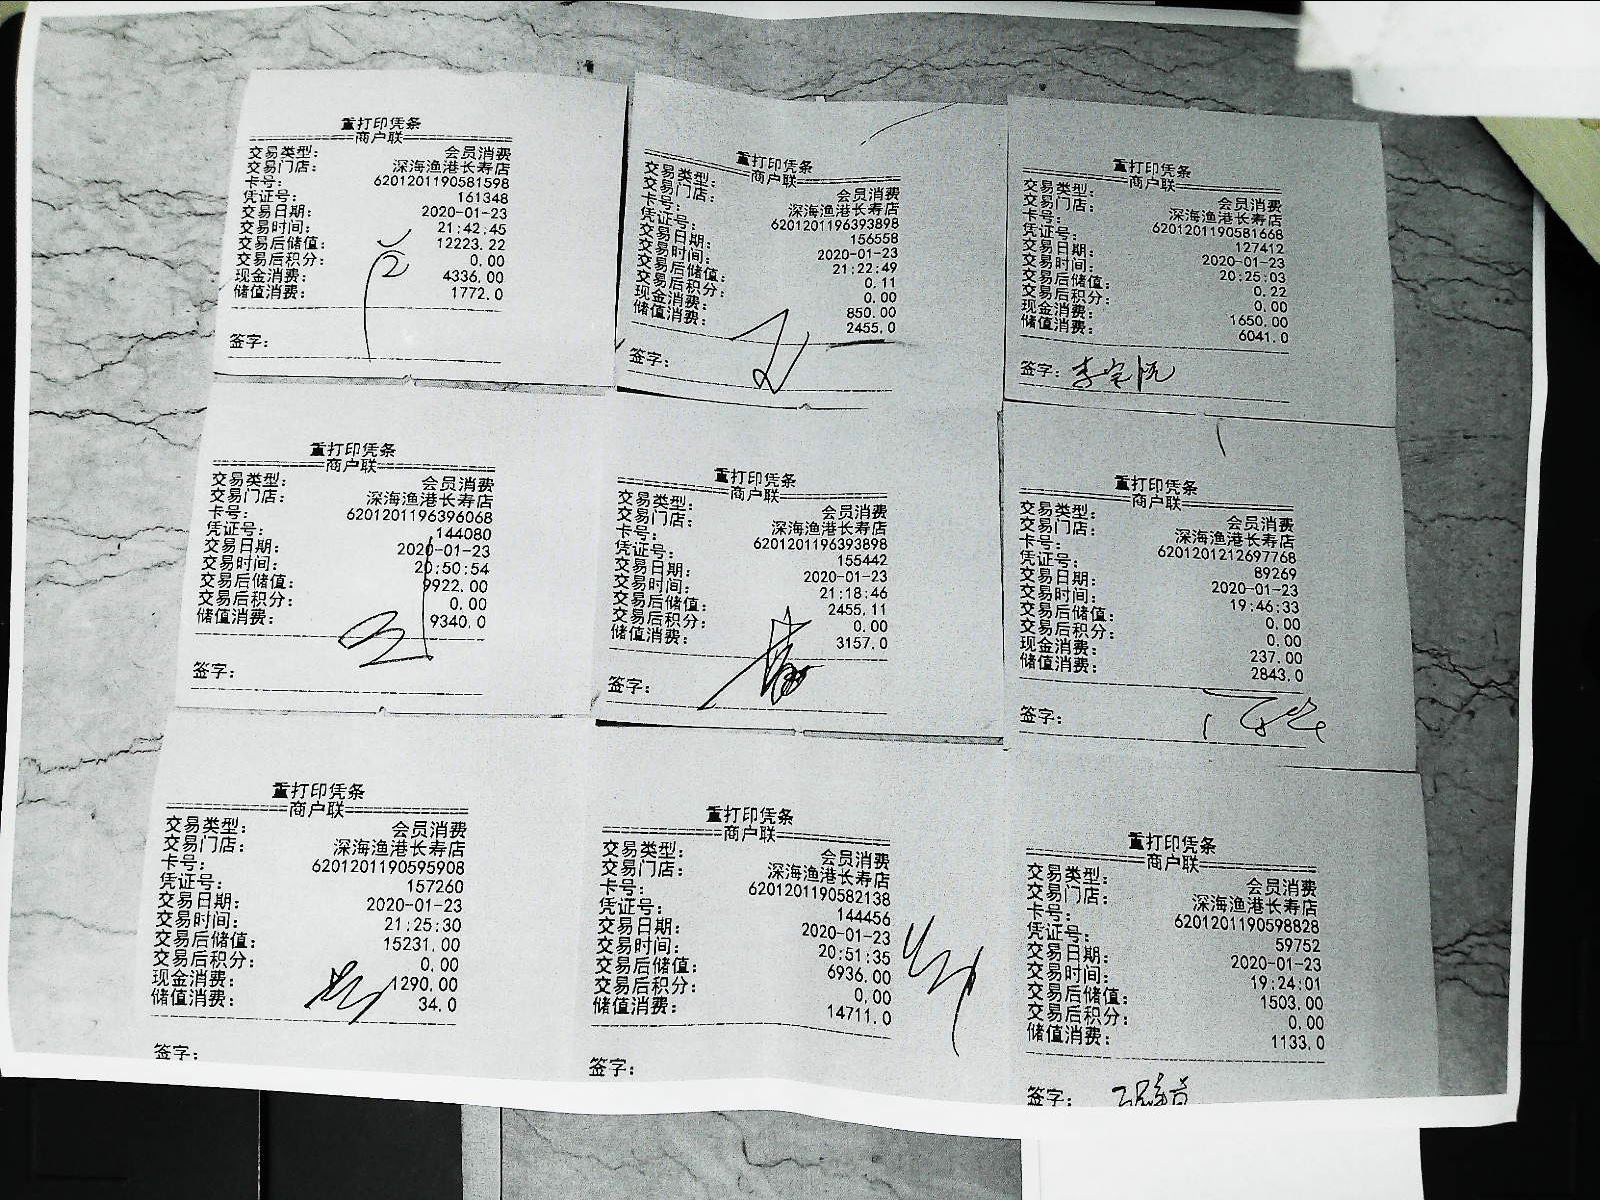 重打印凭条
商户联
交易类型： 会员消费
交易门店： 深海渔港长寿店
卡号： 6201201190581598
凭证号： 161348
交易日期： 2020-01-23
交易时间： 21:42:45
交易后储值： 12223.22
交易后积分： 0.00
现金消费： 4336.00
储值消费： 1772.0
签字：
重打印凭条
商户联
交易类型： 会员消费
交易门店： 深海渔港长寿店
卡号： 6201201196393898
凭证号： 156558
交易日期： 2020-01-23
交易时间： 21:22:49
交易后储值： 0.11
交易后积分： 0.00
现金消费： 850.00
储值消费： 2455.0
签字：
重打印凭条
商户联
交易类型： 会员消费
交易门店： 深海渔港长寿店
卡号： 6201201190581668
凭证号： 127412
交易日期： 2020-01-23
交易时间： 20:25:03
交易后储值： 0.22
交易后积分： 0.00
现金消费： 1650.00
储值消费： 6041.0
签字：
重打印凭条
商户联
交易类型： 会员消费
交易门店： 深海渔港长寿店
卡号： 6201201196396068
凭证号： 144080
交易日期： 2020-01-23
交易时间： 20:50:54
交易后储值： 9922.00
交易后积分： 0.00
储值消费： 9340.0
签字：
重打印凭条
商户联
交易类型： 会员消费
交易门店： 深海渔港长寿店
卡号： 6201201196393898
凭证号： 155442
交易日期： 2020-01-23
交易时间： 21:18:46
交易后储值： 2455.11
交易后积分： 0.00
储值消费： 3157.0
签字：
重打印凭条
商户联
交易类型： 会员消费
交易门店： 深海渔港长寿店
卡号： 6201201212697768
凭证号： 89269
交易日期： 2020-01-23
交易时间： 19:46:33
交易后储值： 0.00
交易后积分： 0.00
现金消费： 237.00
储值消费： 2843.0
签字：
重打印凭条
商户联
交易类型： 会员消费
交易门店： 深海渔港长寿店
卡号： 6201201190595908
凭证号： 157260
交易日期： 2020-01-23
交易时间： 21:25:30
交易后储值： 15231.00
交易后积分： 0.00
现金消费： 1290.00
储值消费： 34.0
签字：
重打印凭条
商户联
交易类型： 会员消费
交易门店： 深海渔港长寿店
卡号： 6201201190582138
凭证号： 144456
交易日期： 2020-01-23
交易时间： 20:51:35
交易后储值： 6936.00
交易后积分： 0.00
储值消费： 14711.0
签字：
重打印凭条
商户联
交易类型： 会员消费
交易门店： 深海渔港长寿店
卡号： 6201201190598828
凭证号： 59752
交易日期： 2020-01-23
交易时间： 19:24:01
交易后储值： 1503.00
交易后积分： 0.00
储值消费： 1133.0
签字：